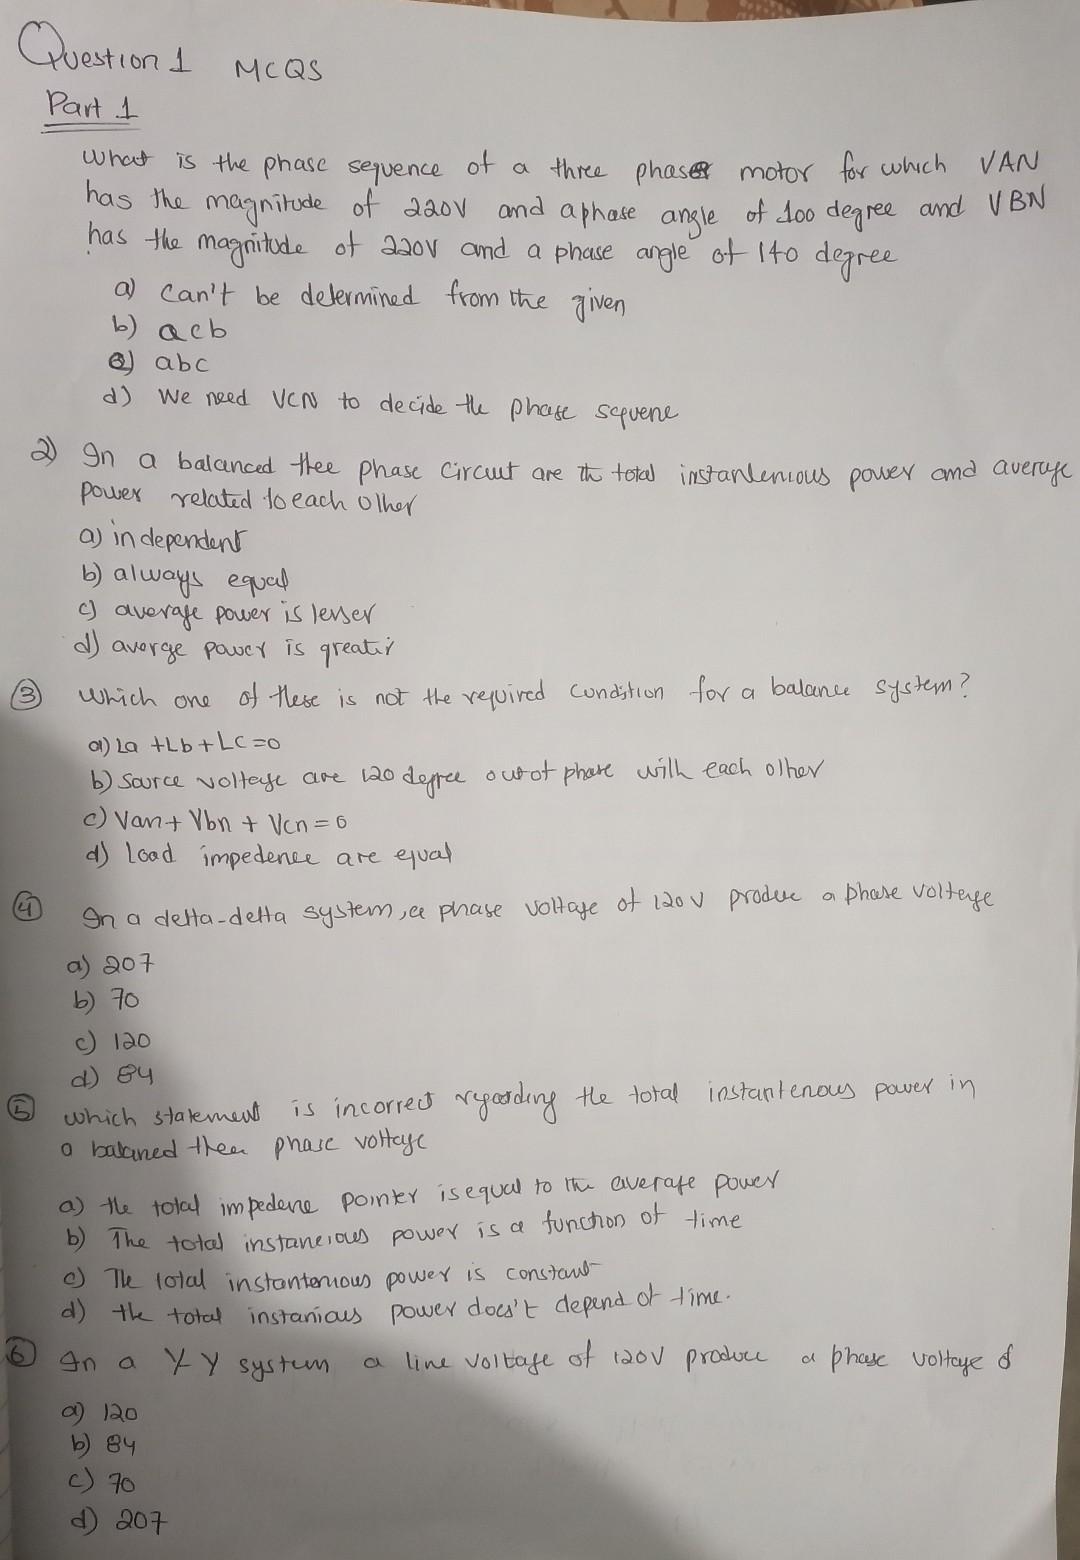 Question 1 MCQS
Part 1
What is the phase sequence of a three phase motor for which VAN
has the magnitude of 220V and a phase angle of 100 degree and VBN
has the magnitude of 220V and a phase angle of 140 degree
a) can't be determined from the given
b) acb
c) abc
d) We need VCN to decide the phase sequene
2) In a balanced thee phase Circuit are the total instantenious power and average
power related to each other
a) independent
b) always equal
c) average power is lesser
d) averge power is greatir
3 Which one of these is not the required condition for a balance system?
a) La + Lb + Lc = 0
b) Source voltage are 120 degree out of phase with each other
c) Van + Vbn + Vcn = 0
d) load impedence are equal
4 In a delta-delta system, a phase voltage of 120 V produce a phase voltage
a) 207
b) 70
c) 120
d) 84
5 which statement is incorrect regarding the total instantenous power in
a balanced thee phase voltage
a) the total impedene pointer is equal to the average power
b) The total instaneious power is a function of time
c) The total instantenious power is constant
d) the total instanious power does't depend of time.
6 In a Y Y system a line voltage of 120V produce a phase voltage of
a) 120
b) 84
c) 70
d) 207